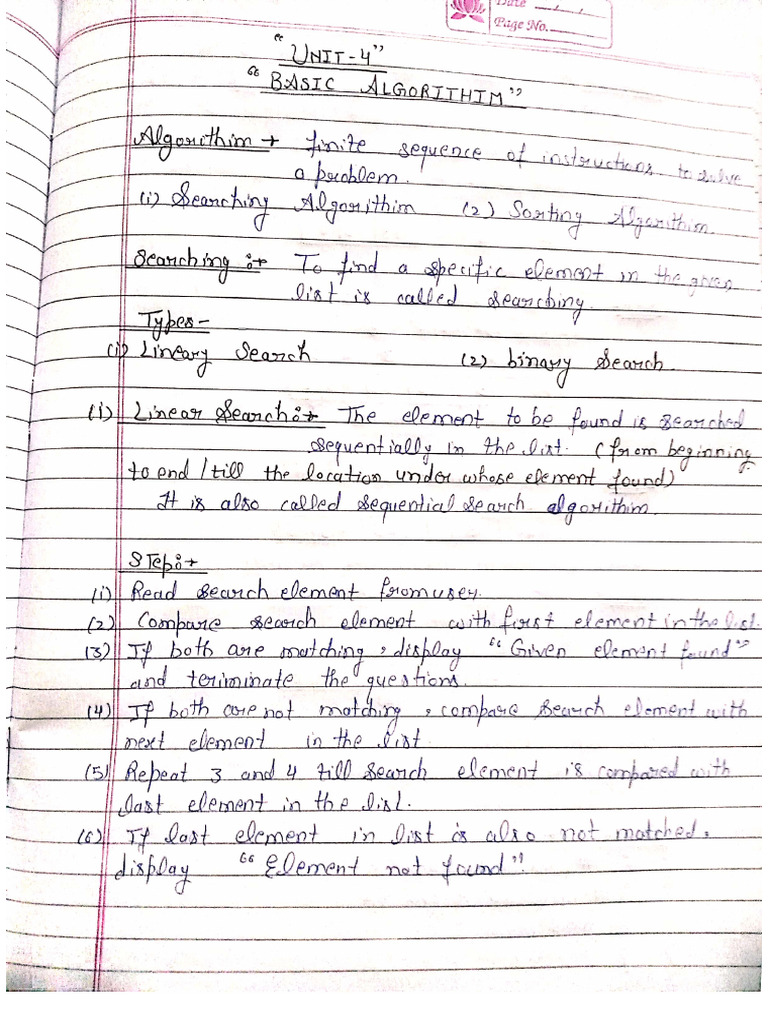 Date __/__/__
Page No.____
"UNIT-4"
"BASIC ALGORITHIM"
Algorithim → finite sequence of instructions to solve
a problem.
(1) Searching Algorithim (2) Sorting Algorithim.
Searching :→ To find a specific element in the given
list is called searching.
Types-
(1) Lineary Search (2) binary Search.
(1) Linear Search:→ The element to be found is searched
sequentially in the list. (from beginning
to end / till the location under whose element found)
It is also called sequential search algorithim.
STep:→
(1) Read search element from user.
(2) Compare search element with first element in the list.
(3) If both are matching, display "Given element found"
and teriminate the questions.
(4) If both are not matching, compare search element with
next element in the list
(5) Repeat 3 and 4 till search element is compared with
last element in the list.
(6) If last element in list is also not matched,
display "Element not found".